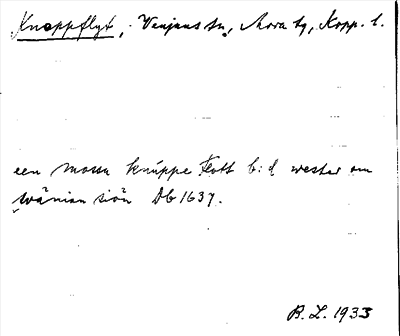 Knappflyt, Venjans sn, Mora tg, Kopp. l.
een mossu knúppe flott b:d wester om
wänian siön Db 1637.
B. L. 1933